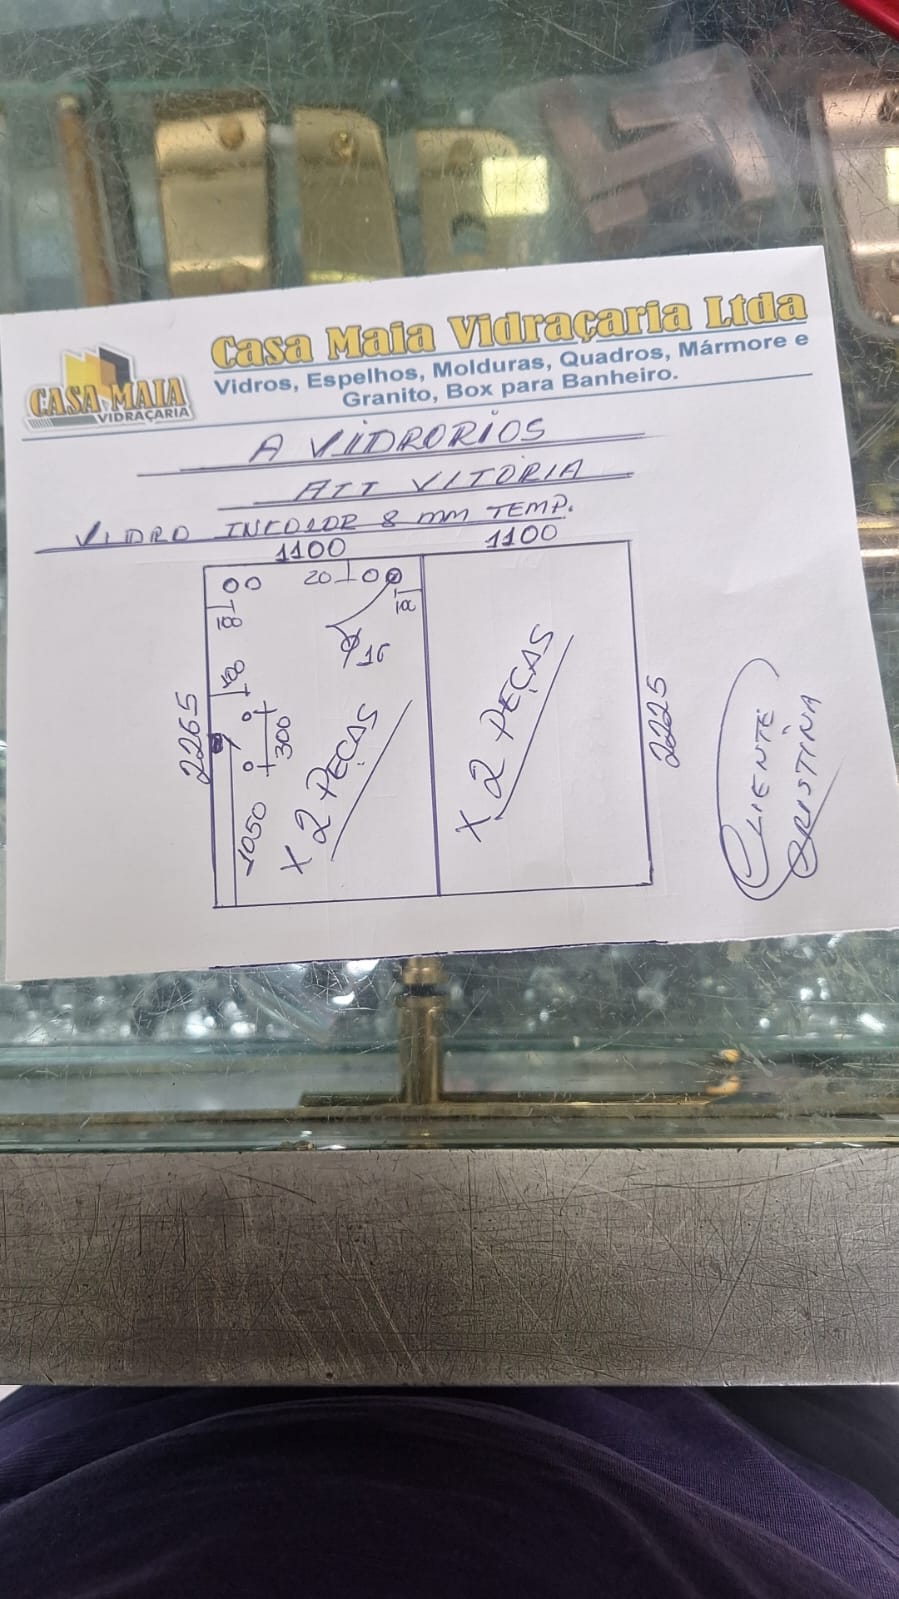 Casa Maia Vidraçaria Ltda
Vidros, Espelhos, Molduras, Quadros, Mármore e
Granito, Box para Banheiro.
CASA MAIA
VIDRAÇARIA
A VIDRORIOS
ATT VITORIA
VIDRO INCOLOR 8 mm TEMP.
1100
1100
20
Ø16
100
2265
300
1050
X 2 PEÇAS
X 2 PEÇAS
2225
CLIENTE
CRISTINA